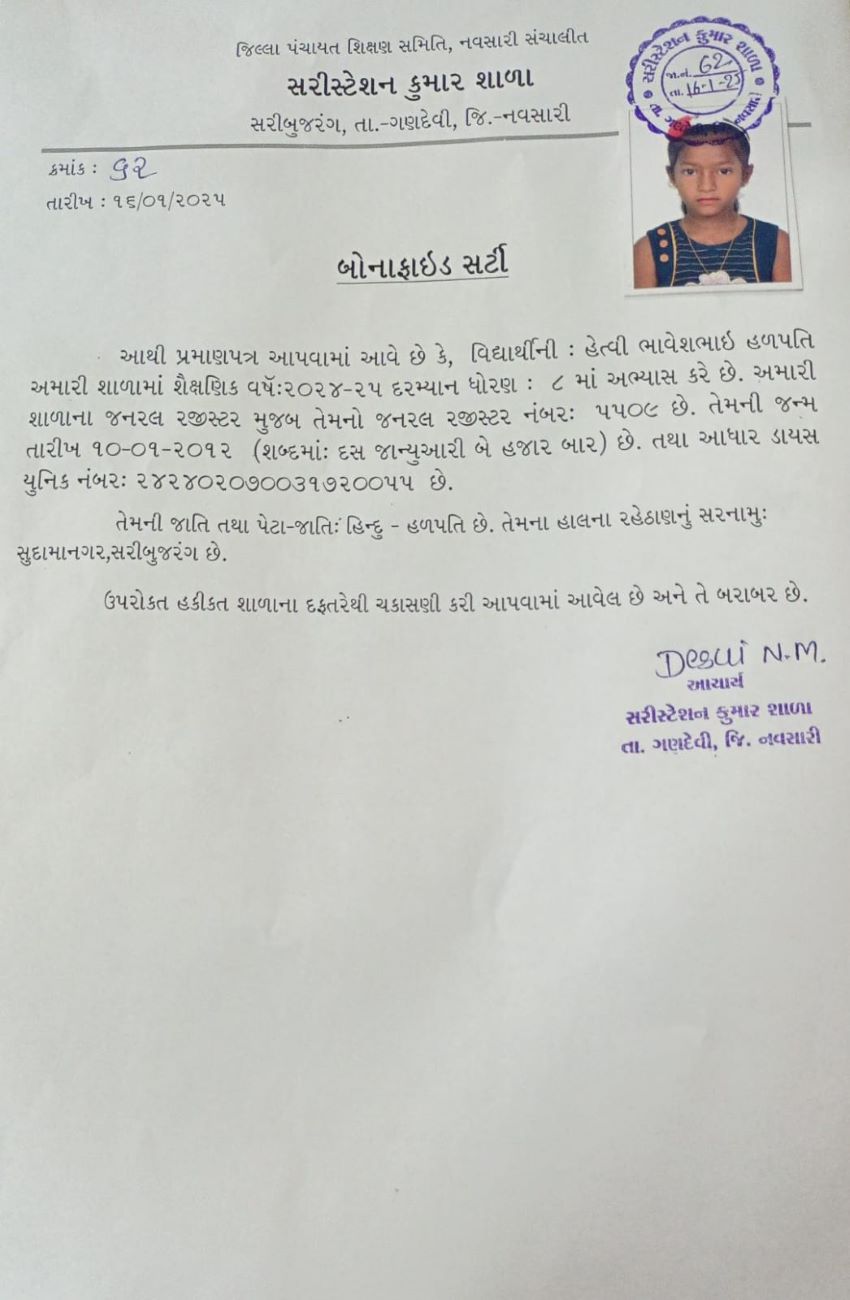 જિલ્લા પંચાયત શિક્ષણ સમિતિ, નવસારી સંચાલીત
સરીસ્ટેશન કુમાર શાળા
સરીબુજરંગ, તા.-ગણદેવી, જિ.-નવસારી
સરીસ્ટેશન કુમાર શાળા
જા.નં. 62
તા. 16-1-25
ક્રમાંક : ૬૨
તારીખ : ૧૬/૦૧/૨૦૨૫
બોનાફાઇડ સર્ટી
આથી પ્રમાણપત્ર આપવામાં આવે છે કે, વિદ્યાર્થીની : હેત્વી ભાવેશભાઇ હળપતિ
અમારી શાળામાં શૈક્ષણિક વર્ષ:૨૦૨૪-૨૫ દરમ્યાન ધોરણ : ૮ માં અભ્યાસ કરે છે. અમારી
શાળાના જનરલ રજીસ્ટર મુજબ તેમનો જનરલ રજીસ્ટર નંબર: ૫૫૦૯ છે. તેમની જન્મ
તારીખ ૧૦-૦૧-૨૦૧૨ (શબ્દમાં: દસ જાન્યુઆરી બે હજાર બાર) છે. તથા આધાર ડાયસ
યુનિક નંબર: ૨૪૨૪૦૨૦૭૦૦૩૧૭૨૦૦૫૫ છે.
તેમની જાતિ તથા પેટા-જાતિ: હિન્દુ - હળપતિ છે. તેમના હાલના રહેઠાણનું સરનામુ:
સુદામાનગર,સરીબુજરંગ છે.
ઉપરોકત હકીકત શાળાના દફતરેથી ચકાસણી કરી આપવામાં આવેલ છે અને તે બરાબર છે.
Desai N.M.
આચાર્ય
સરીસ્ટેશન કુમાર શાળા
તા. ગણદેવી, જિ. નવસારી